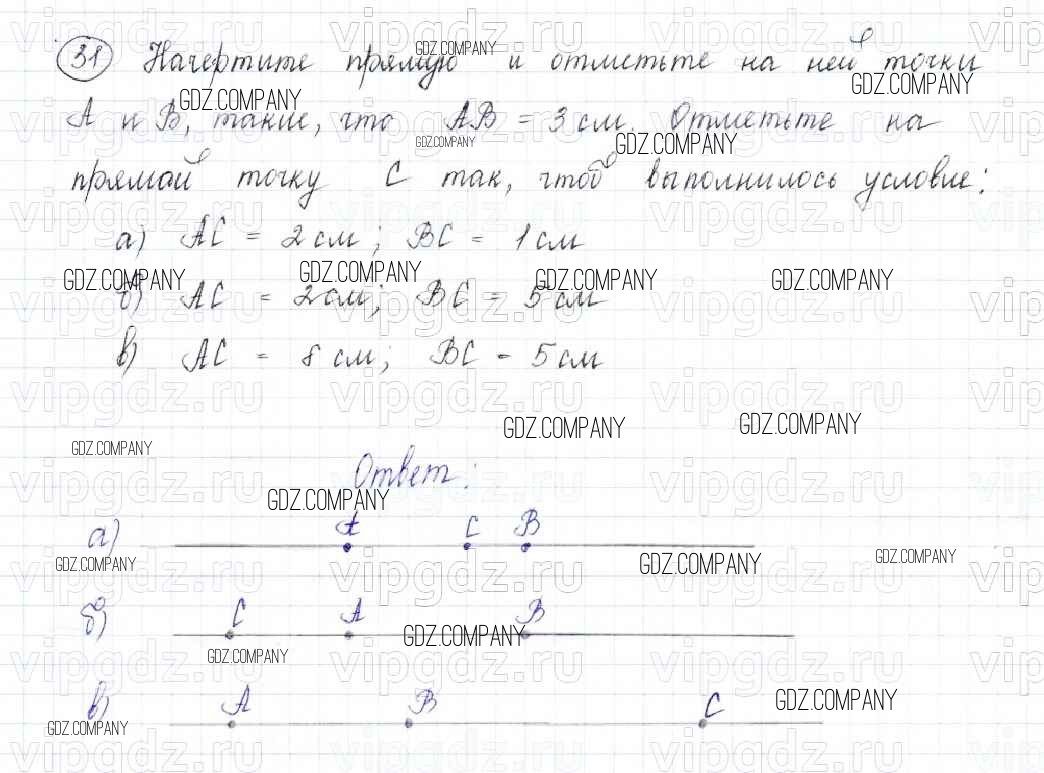 31 Начертите прямую и отметьте на ней точки
А и В, такие, что АВ = 3 см. Отметьте на
прямой точку С так, чтоб выполнилось условие:
а) АС = 2 см; ВС = 1 см
б) АС = 2 см; ВС = 5 см
в) АС = 8 см; ВС = 5 см
Ответ:
а) А С В
б) С А В
в) А В С
GDZ.COMPANY
vipgdz.ru